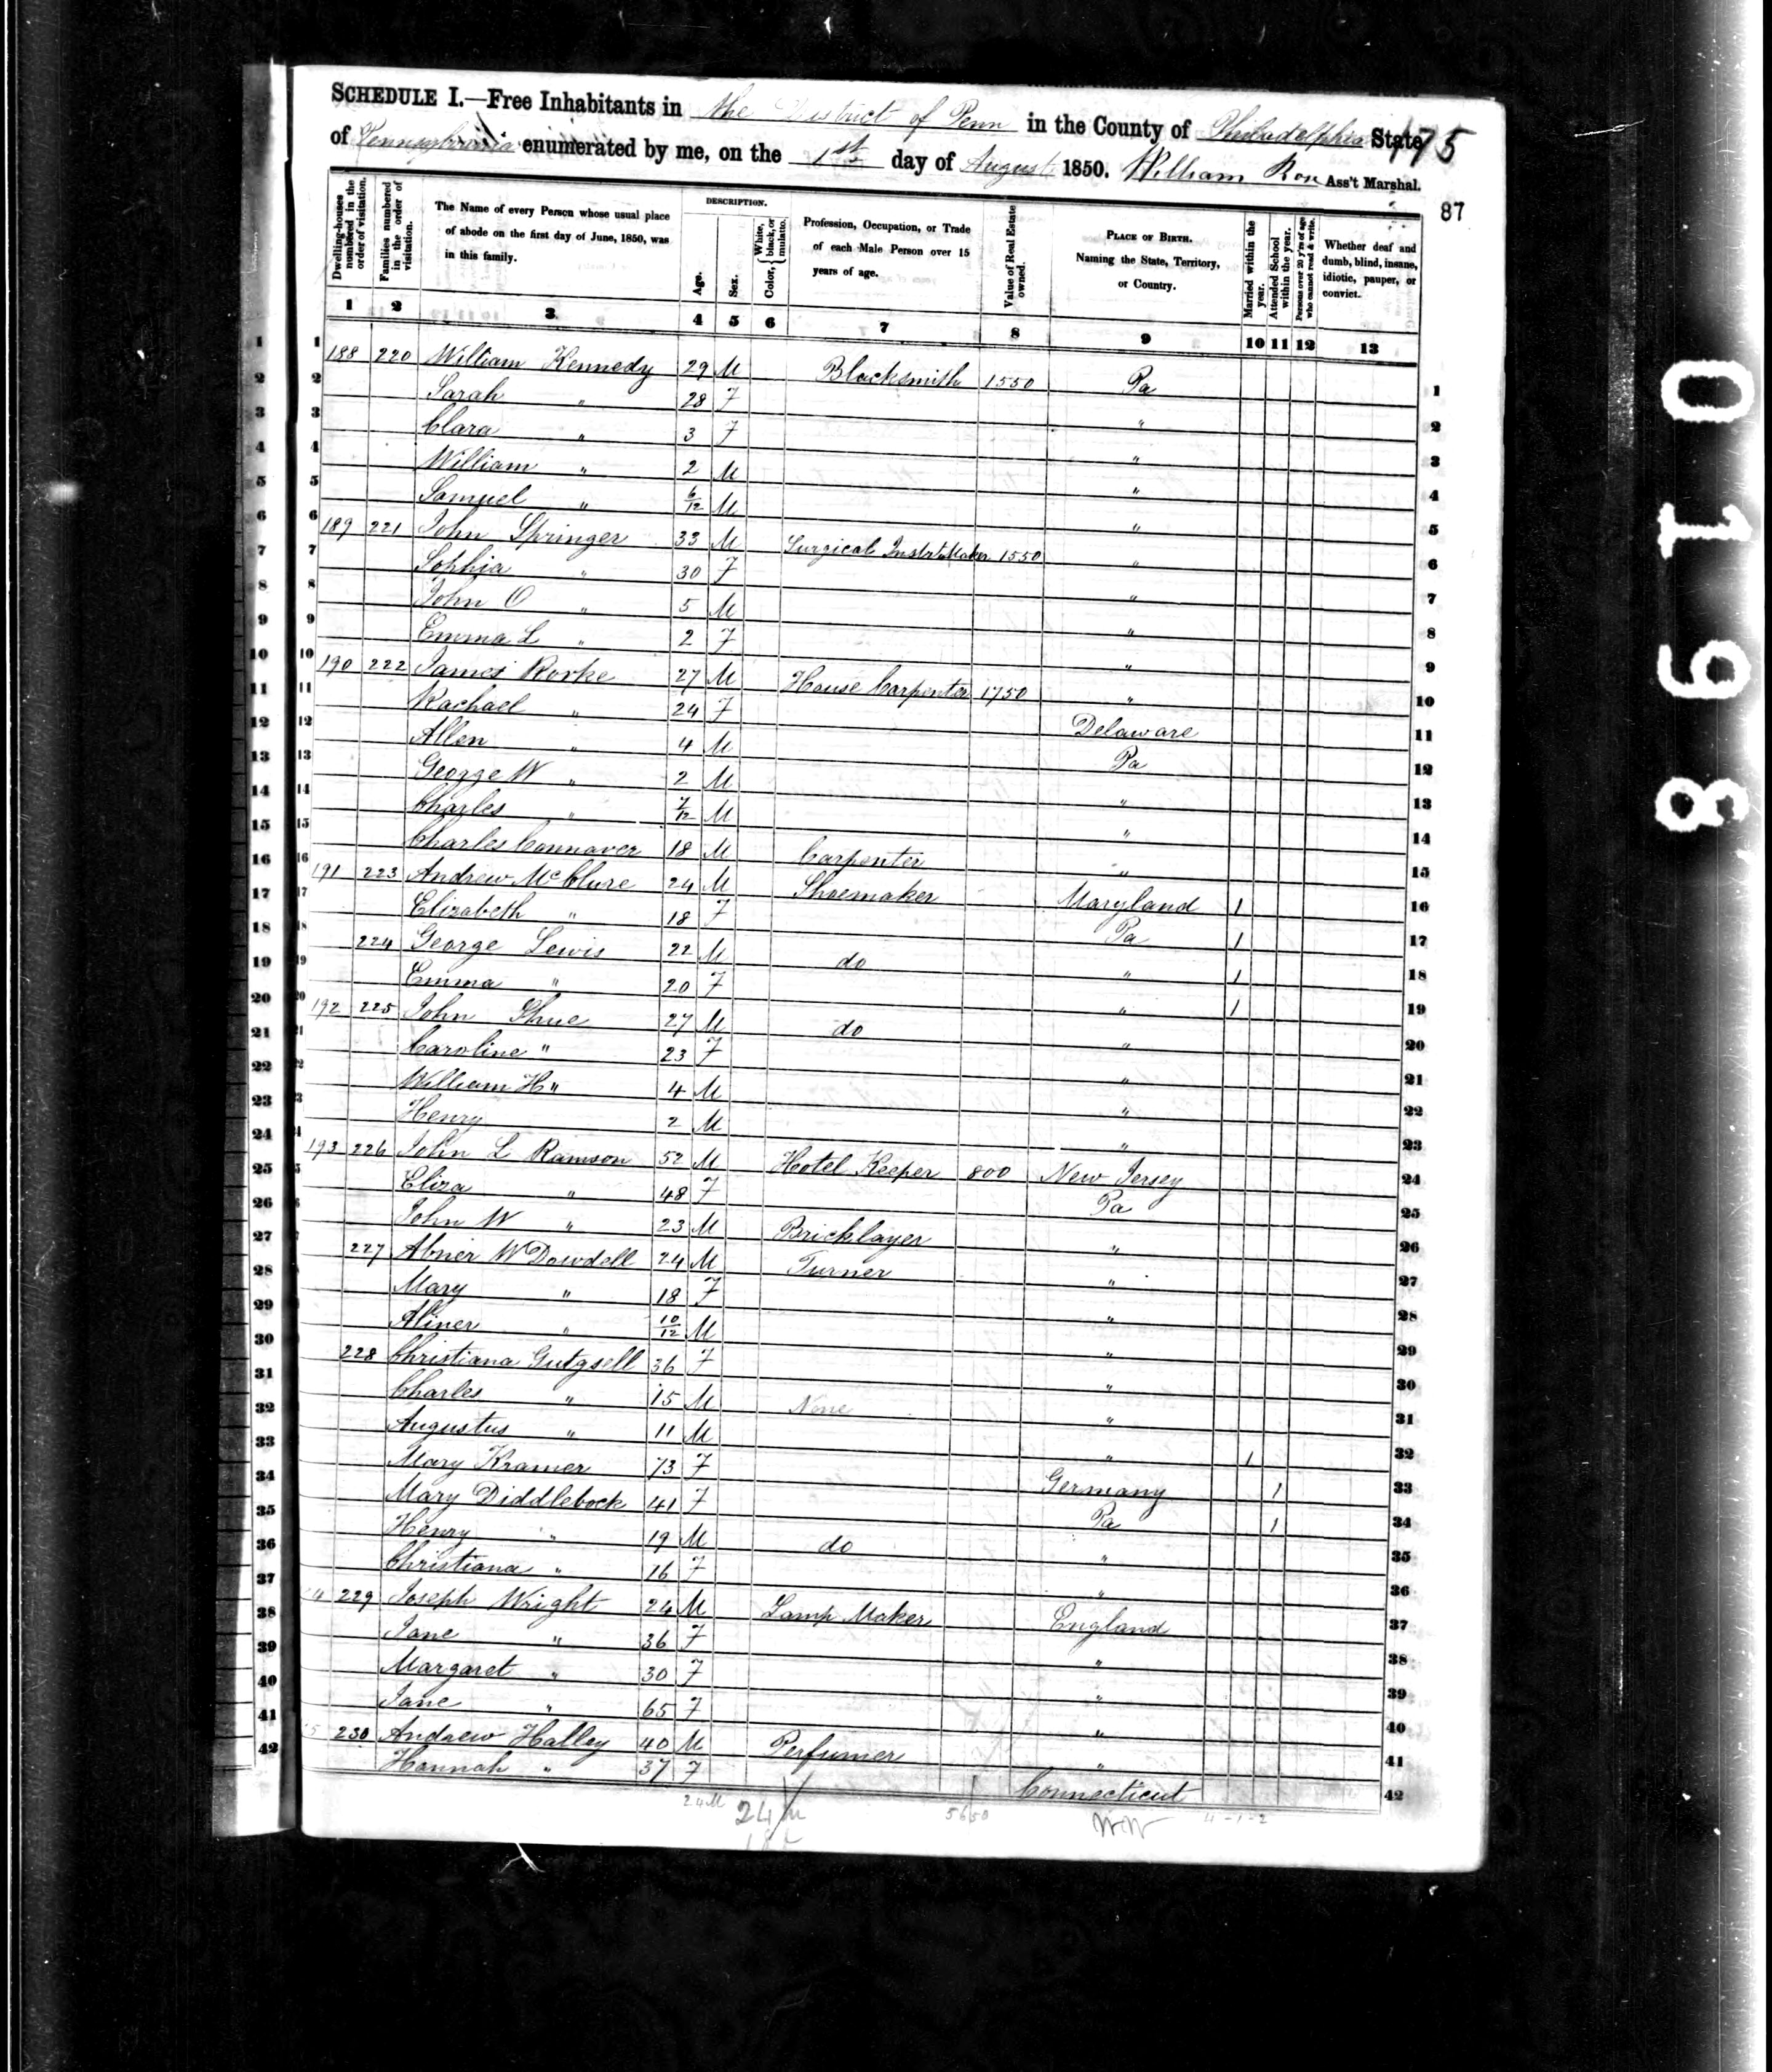 SCHEDULE I.—Free Inhabitants in the District of Penn in the County of Philadelphia State
of Pennsylvania enumerated by me, on the 1st day of August 1850. William Ass't Marshal.
175
87
Dwelling-houses numbered in the order of visitation.
Families numbered in the order of visitation.
The Name of every Person whose usual place of abode on the first day of June, 1850, was in this family.
DESCRIPTION.
Age.
Sex.
Color, { White, black, or mulatto.
Profession, Occupation, or Trade of each Male Person over 15 years of age.
Value of Real Estate owned.
PLACE OF BIRTH. Naming the State, Territory, or Country.
Married within the year.
Attended School within the year.
Persons over 20 y'rs of age who cannot read & write.
Whether deaf and dumb, blind, insane, idiotic, pauper, or convict.
1 2 3 4 5 6 7 8 9 10 11 12 13
1 188 220 William Kennedy 29 M Blacksmith 1550 Pa 1
2 Sarah " 28 F " 2
3 Clara " 3 F " 3
4 William " 2 M " 4
5 Samuel " 6/12 M " 5
6 189 221 John Springer 33 M Surgical Instrt Maker 1550 " 6
7 Sophia " 30 F " 7
8 John O " 5 M " 8
9 Emma L " 2 F " 9
10 190 222 James Rorke 27 M House Carpenter 1750 " 10
11 Rachael " 24 F Delaware 11
12 Allen " 4 M Pa 12
13 George W " 2 M " 13
14 Charles " 7/12 M " 14
15 Charles Connaver 18 M Carpenter " 15
16 191 223 Andrew McClure 24 M Shoemaker Maryland 1 16
17 Elizabeth " 18 F Pa 1 17
18 224 George Lewis 22 M do " 1 18
19 Emma " 20 F " 1 19
20 192 225 John Shue 27 M do " 20
21 Caroline " 23 F " 21
22 William H " 4 M " 22
23 Henry 2 M " 23
24 193 226 John L Ramson 52 M Hotel Keeper 800 New Jersey 24
25 Eliza " 48 F Pa 25
26 John W " 23 M Bricklayer " 26
27 227 Abner W Dowdell 24 M Turner " 27
28 Mary " 18 F " 28
29 Abner " 10/12 M " 29
30 228 Christiana Gutgsell 36 F " 30
31 Charles " 15 M None " 31
32 Augustus " 11 M " 1 32
33 Mary Kramer 73 F Germany 1 33
34 Mary Diddlebock 41 F Pa 1 34
35 Henry " 19 M do " 35
36 Christiana " 16 F " 36
37 229 Joseph Wright 24 M Lamp Maker England 37
38 Jane " 36 F " 38
39 Margaret " 30 F " 39
40 Jane " 65 F " 40
41 230 Andrew Halley 40 M Perfumer " 41
42 Hannah " 37 F Connecticut 42
24 M 24 M 5650 4-1-2
0198